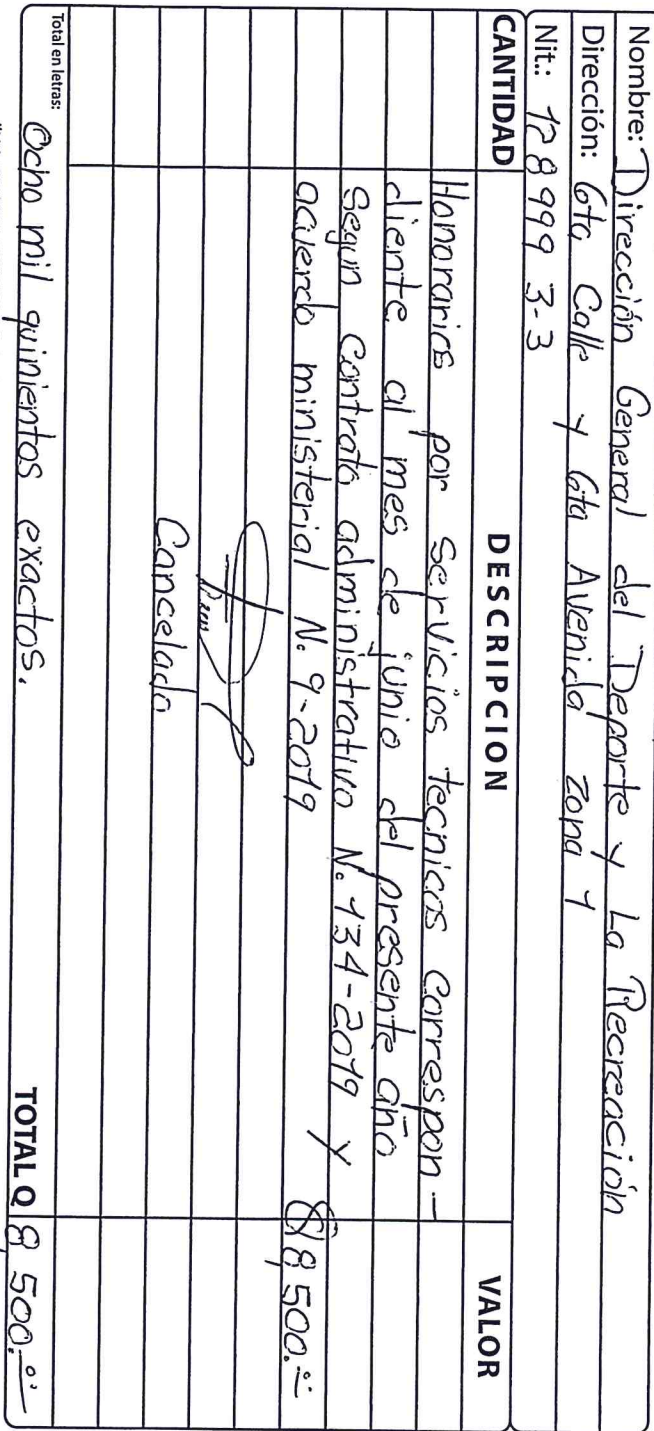 Nombre: Dirección General del Deporte y La Recreación
Dirección: 6ta Calle y 6ta Avenida Zona 1
Nit.: 128999 3-3
CANTIDAD DESCRIPCION VALOR
Honorarios por Servicios tecnicos correspon-
diente al mes de junio del presente año
Segun Contrato administrativo N. 134-2019 y
acuerdo ministerial N. 9-2019 Q 8,500.00
Cancelado
Total en letras: Ocho mil quinientos exactos. TOTAL Q 8,500.00